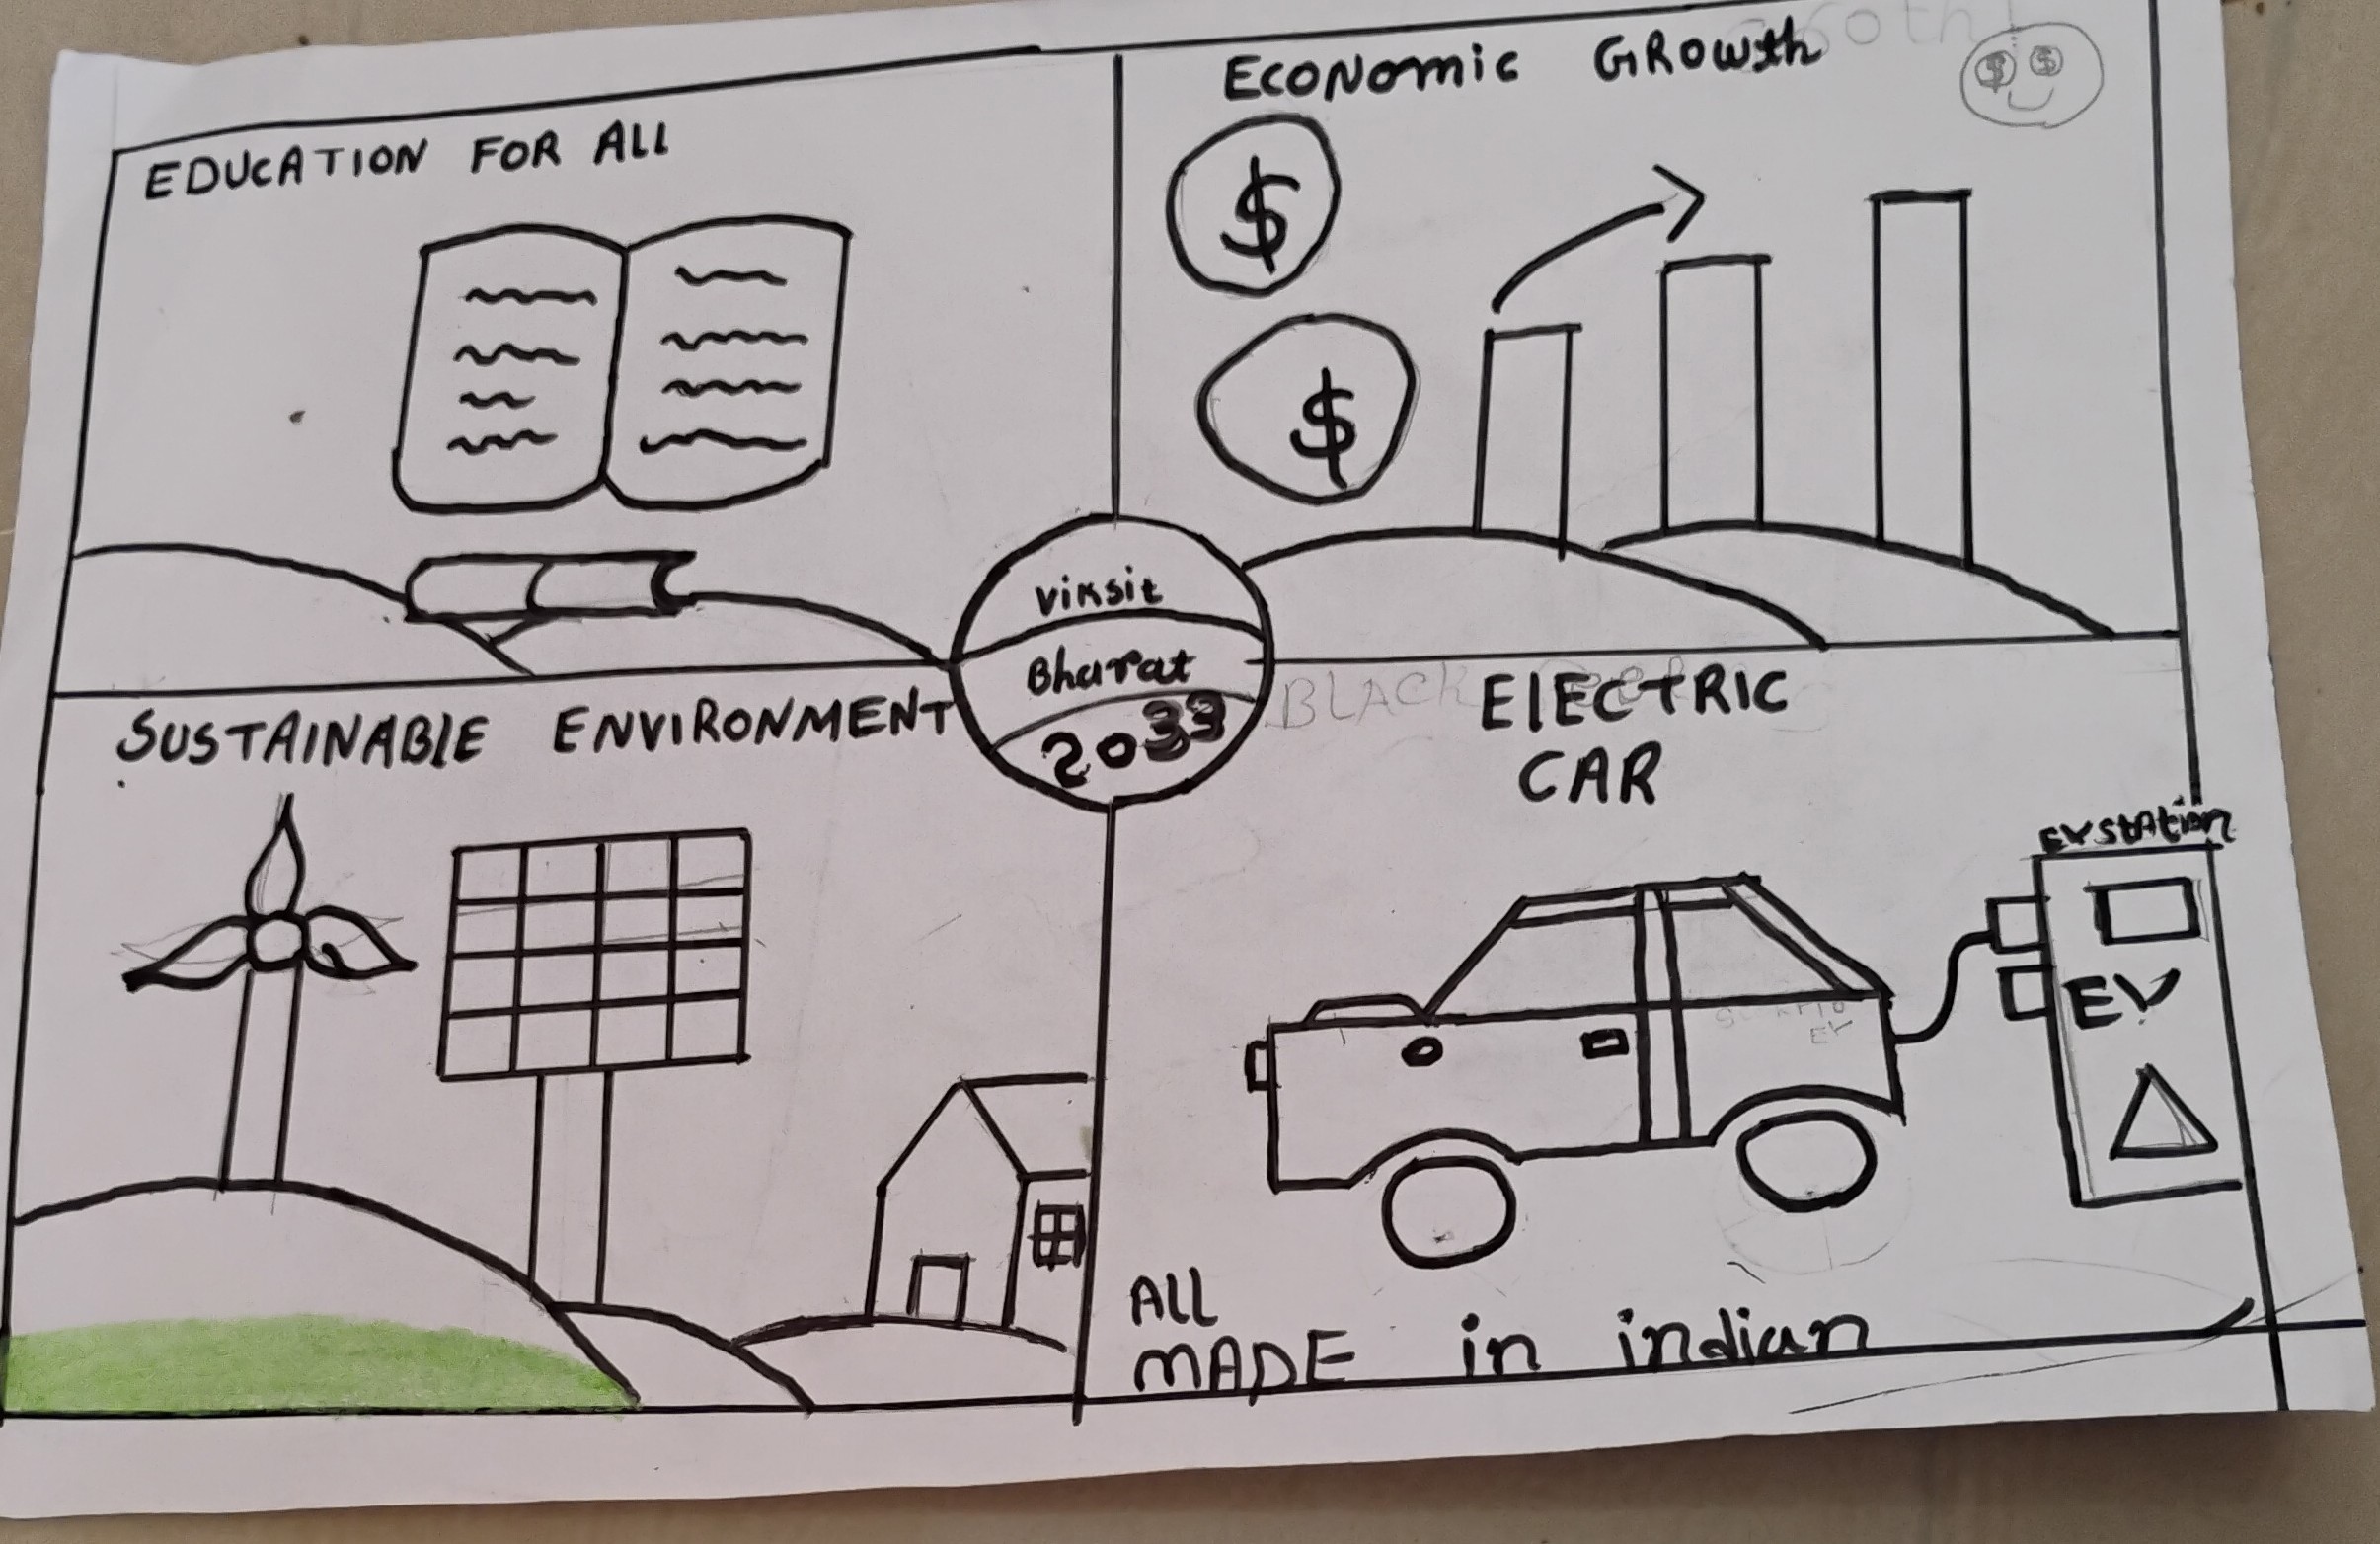 EDUCATION FOR ALL
ECONOMIC GROWTH
$ $
$
$
Viksit
Bharat
2033
SUSTAINABLE ENVIRONMENT
BLACK
ELECTRIC
CAR
EV StAtion
EV
EV
ALL
MADE in indian